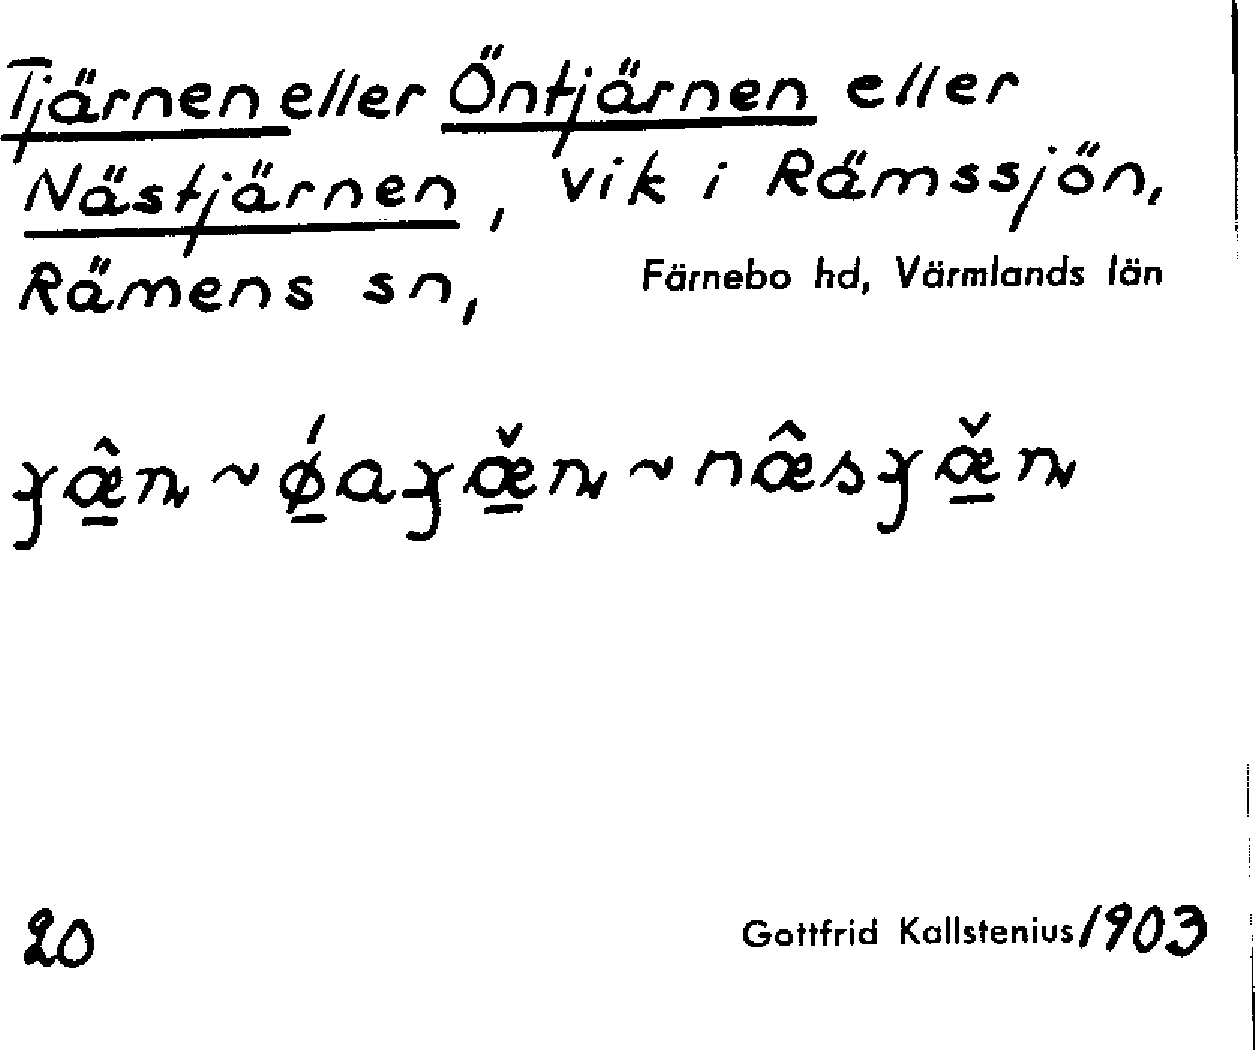 Tjärnen eller Öntjärnen eller
Nästjärnen, vik i Rämssjön,
Rämens sn, Färnebo hd, Värmlands län
20 Gottfrid Kallstenius/1903